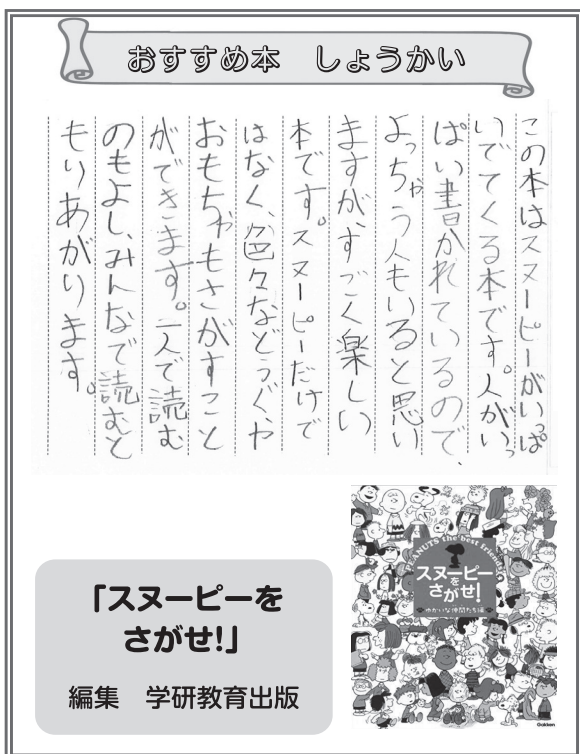 おすすめ本 しょうかい
この本はスヌーピーがいっぱ
いでてくる本です。人がいっ
ぱい書かれているので、
よっちゃう人もいると思い
ますがすごく楽しい
本です。スヌーピーだけで
はなく、色々などうぐや
おもちゃもさがすこと
ができます。一人で読む
のもよし、みんなで読むと
もりあがります。
PEANUTS the best friends
スヌーピー
を
さがせ!
ゆかいな仲間たち編
Gakken
「スヌーピーを
さがせ!」
編集 学研教育出版